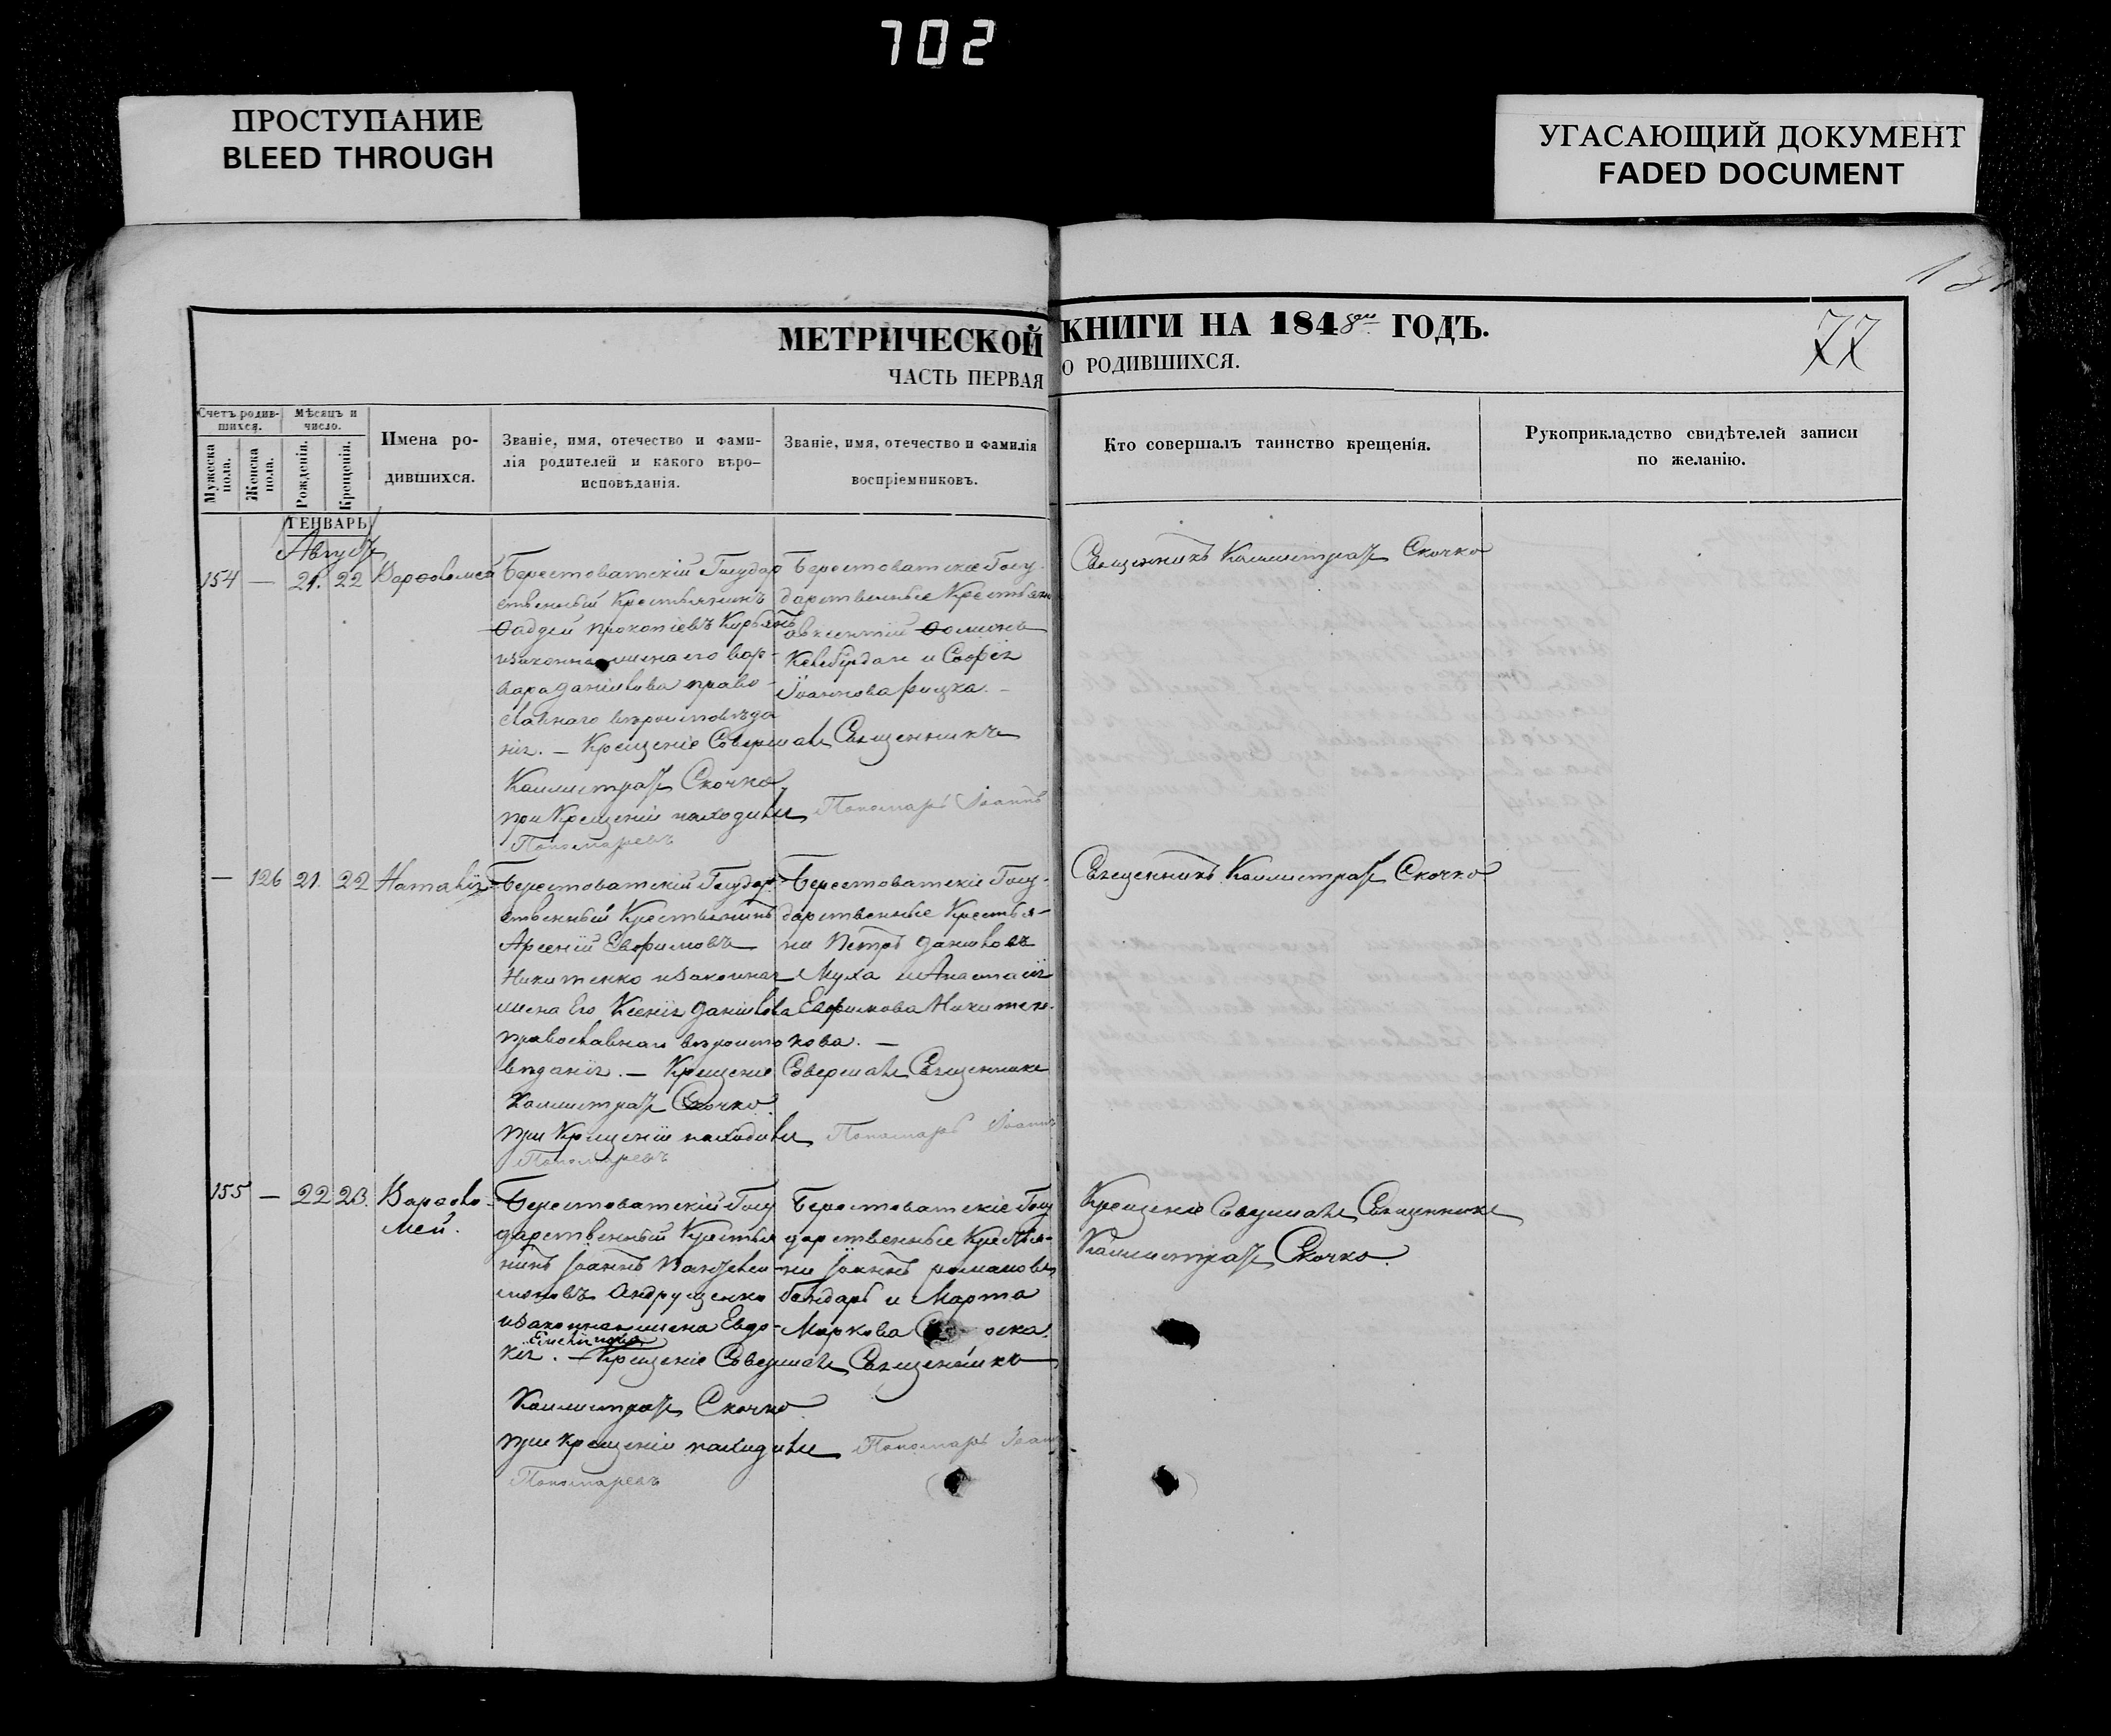 702
ПРОСТУПАНИЕ
BLEED THROUGH
УГАСАЮЩИЙ ДОКУМЕНТ
FADED DOCUMENT
МЕТРИЧЕСКОЙ КНИГИ НА 1848 ГОДЪ.
77
ЧАСТЬ ПЕРВАЯ О РОДИВШИХСЯ.
Счетъ родив-
шихся.
Мужеска пола.
Женска пола.
Мѣсяцъ и
число.
Рожденія.
Крещенія.
Имена ро-
дившихся.
Званіе, имя, отечество и фами-
лія родителей и какого вѣро-
исповѣданія.
Званіе, имя, отечество и фамилія
воспріемниковъ.
Кто совершалъ таинство крещенія.
Рукоприкладство свидѣтелей записи
по желанію.
ГЕНВАРЬ
Августъ
154 — 21. 22 Варѳоломей
Берестоватскій Государ
ственный Крестьянинъ
Ѳаддей Прокопіевъ
и законная жена его Вар-
вара Даніилова право-
славнаго вѣроисповѣда
нія. — Крещеніе Совершалъ Священникъ
Каллистратъ Скочко
при Крещеніи находился Пономарь Іоаннъ
Пономаревъ
Берестоватскіе Госу-
дарственные Крестьяне
Авксентій Ѳоминъ
и Софія
Іоаннова
Священникъ Каллистратъ Скочко
— 126 21. 22 Наталія
Берестоватскій Государ-
ственный Крестьянинъ
Арсеній Евфимовъ
Никитенко и законная
жена Его Ксенія Даніилова
православнаго вѣроиспо
вѣданія. — Крещеніе Совершалъ Священникъ
Каллистратъ Скочко.
при Крещеніи находился Пономарь Іоаннъ
Пономаревъ
Берестоватскіе Госу-
дарственные Крестья-
не Петръ Даниловъ
Муха и Анастасія
Евфимова Никитен-
кова. —
Священникъ Каллистратъ Скочко
155 — 22 23. Варѳоло-
мей.
Берестоватскій Госу
дарственный Крестья
нинъ Іоаннъ Пантелеи-
моновъ Андрущенко
и законная жена Евдо-
кія. — Крещеніе Совершалъ Священникъ
Каллистратъ Скочко
при крещеніи находился Пономарь Іоаннъ
Пономаревъ
Берестоватскіе Госу
дарственные Крестья-
не Іоаннъ Романовъ
Бондарь и Марта
Маркова
Крещеніе Совершалъ Священникъ
Каллистратъ Скочко.